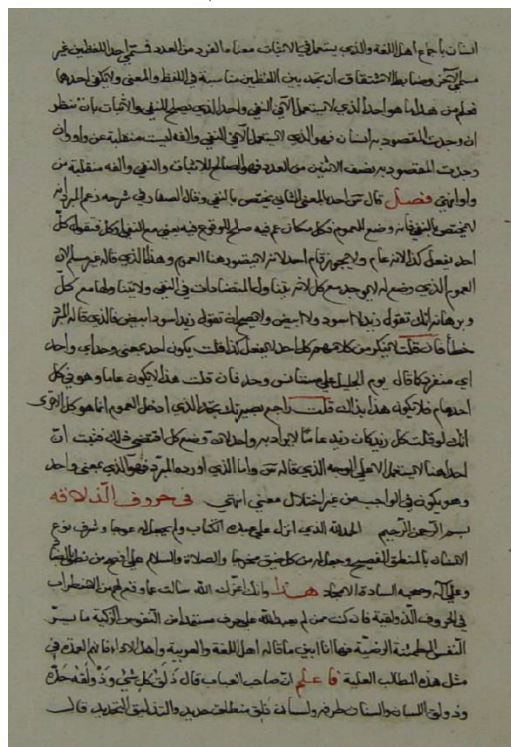 انسان باجماع اهل اللغة والذي يستعمل في الاثبات معناه الفرد من العدد فتسمي احد اللفظين غير
مسمي الآخر وضابط الاشتقاق ان تجد بين اللفظين مناسبة في اللفظ والمعنى ولا يكفي احدها
تعلم من هذا ما هو احد الذي لا يستعمل الا في النفي واحد الذي يصلح للنفي والاثبات بان تنظر
ان وجدت المقصود به انسان فهو الذي لا يستعمل الا في النفي والفه ليست منقلبة عن واو وان
وجدت المقصود به نصف الاثنين من العدد فهو الصالح للاثبات والنفي والفه منقلبة عن
واو انتهى فصل قال احد بالمعنى الثاني يختص بالنفي وقال الصفار في شرحه زعم المبرد انه
لا يختص بالنفي فانه وضع للعموم فكل مكان عم فيه صلح الوقوع فيه يعني مع النفي او كل فتقول كل
احد يفعل كذا لانه عام ولا يجوز قام احد لانه لا يتصور هنا العموم وهذا الذي قاله غير مسلم لان
العموم الذي وضع له لا يوجد مع كل لانه يتناول المتضادات في النفي ولا يتناولها مع كل
وبرهانه انك تقول زيد لا اسود ولا ابيض ولا تقول زيد اسود ابيض فالذي قاله المبرد
خطأ فان قلت من كلامهم كل احد يفعل كذا قلت يكون احد بمعنى وحد اي واحد
اي منفرد كما قال يوم الجليل على مستأنس وحد فان قلت هذا لا يكون عاما وهو في كل
احد عام فلا يكون هذا بذاك قلت راجع بصيرتك تجد الذي ادخل العموم انما هو كل الا ترى
انك لو قلت كل زيد كان زيد عاما لا يراد به واحد لان وضع كل اقتضى ذلك فثبت ان
احدا هنا لا يستعمل الا على الوجه الذي قاله واما الذي اورده المبرد فهو الذي بمعنى واحد
وهو يكون في الواجب من غير اختلال معنى انتهى في حروف الذلاقه
بسم الله الرحمن الرحيم الحمد لله الذي انزل على عبده الكتاب ولم يجعل له عوجا وشرف نوع
الانسان بالمنطق الفصيح وجعل له من كل ضيق مخرجا والصلاة والسلام على افصح من نطق بالضاد
وعلى آله وصحبه السادة الامجاد هذا وانك اعزك الله سالت عما وقع لهم من الاضطراب
في الحروف الذولقية فان كنت ممن لم يعبد الله على حرف مستمدا من النفوس الزكية ما يسر
النفس المطمئنة الرضية فها انا ابين ما قاله اهل اللغة والعربية واهل الاداء فانهم العمدة في
مثل هذه المطالب العلية فاعلم ان صاحب العباب قال ذلق كل شئ وذولقه حده
وذولق اللسان والسنان طرفه ولسان ذلق منطلق حديد والتذليق التحديد قال